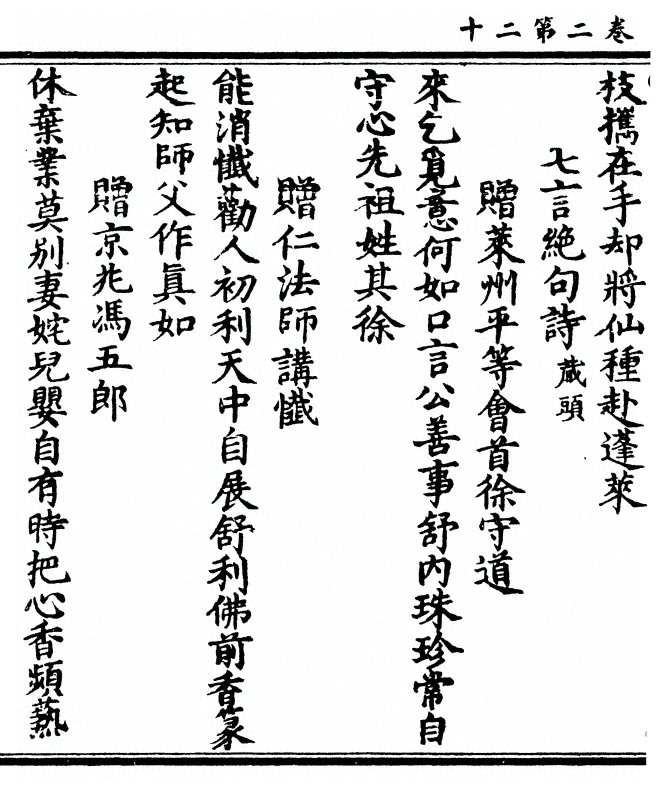 卷二第二十
枝攜在手却將仙種赴蓬萊
七言絕句詩藏頭
贈萊州平等會首徐守道
來乞覓意何如口言公善事舒內珠珍常自
守心先祖姓其徐
贈仁法師講懺
能消懺勸人初利天中自展舒利佛前香篆
起知師父作真如
贈京兆馮五郎
休棄業莫別妻姹兒嬰自有時把心香頻爇